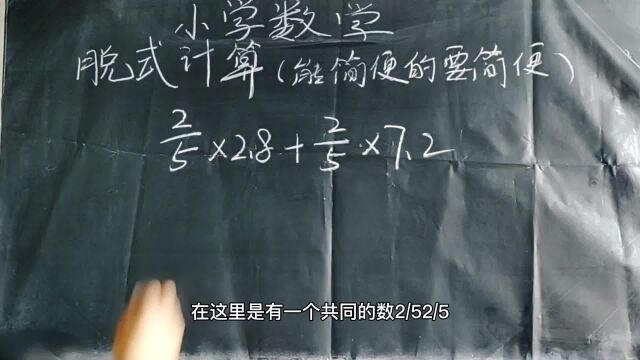 小学数学
脱式计算(能简便的要简便)
2/5×2.8+2/5×7.2
在这里是有一个共同的数2/52/5